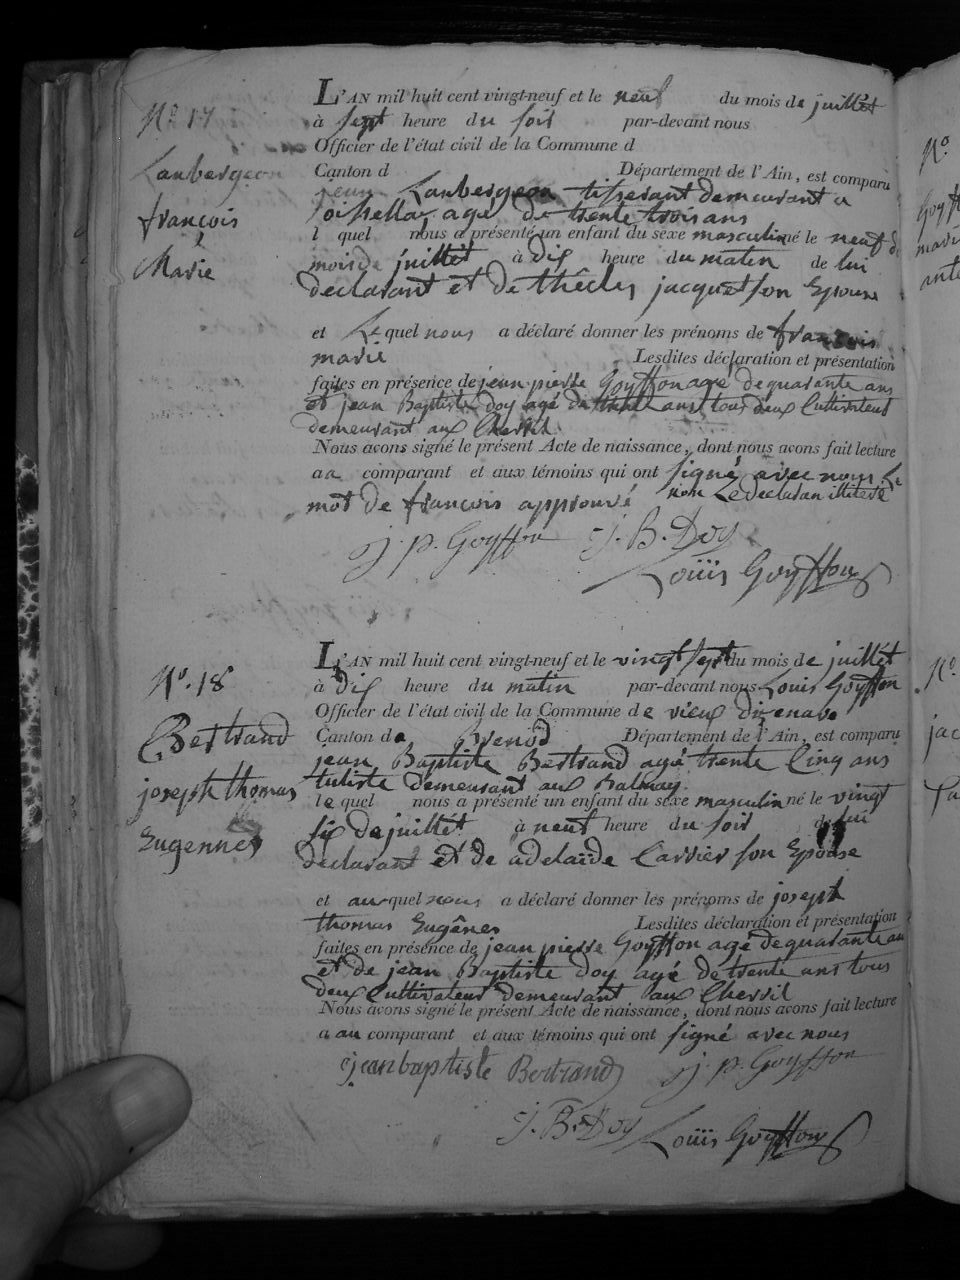 N.º 17
Laubergeon
françois
Marie
L'AN mil huit cent vingt-neuf et le neuf du mois de juillet
à sept heure du soir par-devant nous
Officier de l'état civil de la Commune d
Canton d Département de l'Ain, est comparu
jean Laubergeon tisserant demeurant a
oissellaz agé de trente trois ans
l quel nous a présenté un enfant du sexe masculin né le neuf du
mois de juillet à dis heure du matin de lui
declarant et de thêcles jacquet son Epouse
et Lequel nous a déclaré donner les prénoms de françois
marie Lesdites déclaration et présentation
faites en présence de jean pierre Goyffon agé de quarante ans
et jean Baptiste Doy agé de trente ans tous deux Cultivateur
demeurant aux Chevril
Nous avons signé le présent Acte de naissance, dont nous avons fait lecture
au comparant et aux témoins qui ont signé avec nous Le
mot de françois approuvé non Le declaran illiteré
j. p. Goyffon J. B. Doy
Louïs Goyffon
N.º 18
Bertrand
joseph thomas
Eugennes
L'AN mil huit cent vingt-neuf et le vingt sept du mois de juillet
à dis heure du matin par-devant nous Louis Goyffon
Officier de l'état civil de la Commune de vieux dizenave
Canton de Brenod Département de l'Ain, est comparu
jean Baptiste Bertrand agé trente Cinq ans
tuliste demeurant aux Balmay
le quel nous a présenté un enfant du sexe masculin né le vingt
six de juillet à neuf heure du soir de lui
declarant et de adelaïde Carrier son Epouse
et auquel nous a déclaré donner les prénoms de joseph
thomas Eugênes Lesdites déclaration et présentation
faites en présence de jean pierre Goyffon agé de quarante an
et de jean Baptiste doy agé de trente ans tous
deux Cultivateur demeurant aux Chevril
Nous avons signé le présent Acte de naissance, dont nous avons fait lecture
a au comparant et aux témoins qui ont signé avec nous
jean baptiste Bertrand j. p. Goyffon
J. B. Doy Louïs Goyffon
N.º
Goyff
marie
ante
N.º
jac